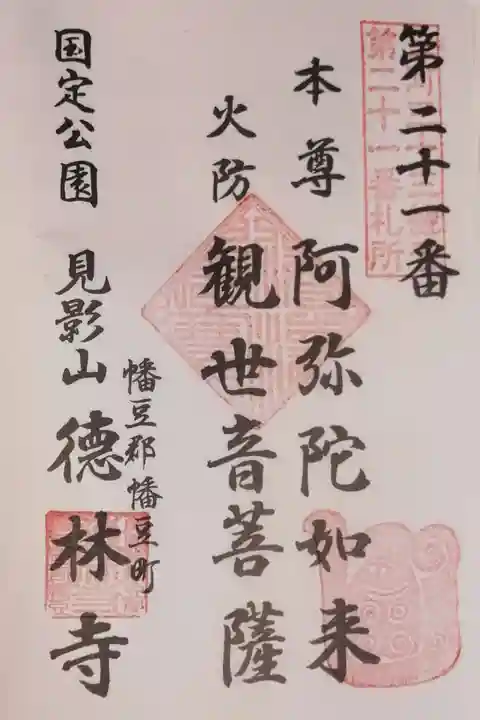 第二十一番
第二十一番札所
本尊 阿弥陀如来
火防 観世音菩薩
幡豆郡幡豆町
国定公園 見影山 徳林寺